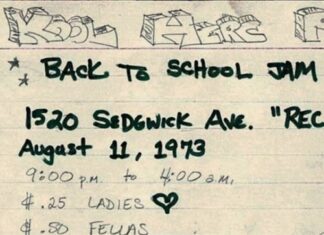 KOOL HERC
BACK TO SCHOOL JAM
1520 SEDGWICK AVE. "REC
August 11, 1973
9:00 p.m. to 4:00 a.m.
$.25 LADIES
$.50 FELLAS